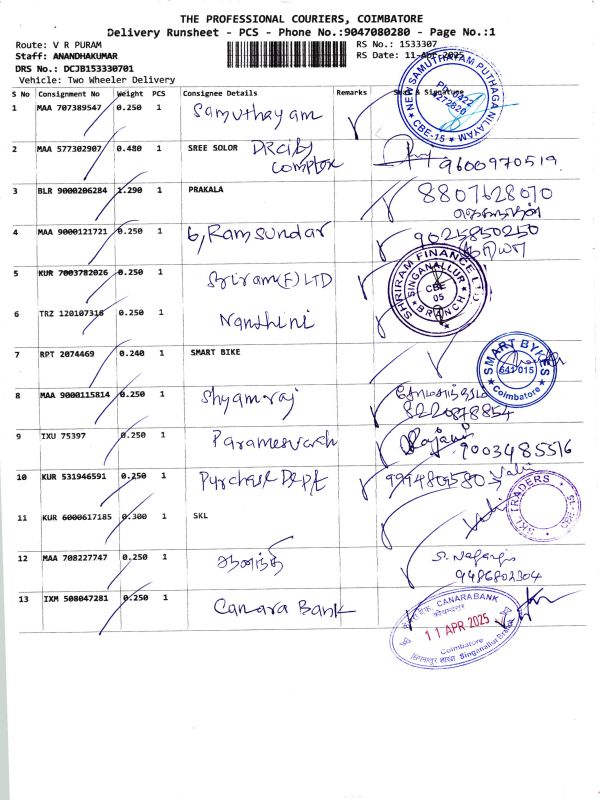 THE PROFESSIONAL COURIERS, COIMBATORE
Delivery Runsheet - PCS - Phone No.:9047080280 - Page No.:1
Route: V R PURAM
RS No.: 1533307
Staff: ANANDHAKUMAR
RS Date: 11-Apr-2025
DRS No.: DCJB153330701
Vehicle: Two Wheeler Delivery
S No Consignment No Weight PCS Consignee Details Remarks Seal & Signature
1 MAA 707389547 0.250 1 Samuthayam
NEW SAMUTHAYAM PUTHAGA NILAYAM
CBE-15
2 MAA 577302907 0.480 1 SREE SOLOR DRcity
complex
9600970519
3 BLR 9000206284 1.290 1 PRAKALA 8807628070
4 MAA 9000121721 0.250 1 G, Ramsundar 9025850250
5 KUR 7003782026 0.250 1 Sriram(F) LTD
SHRIRAM FINANCE LTD
SINGANALLUR
CBE
05
BRANCH
6 TRZ 120107316 0.250 1 Nandhini
7 RPT 2074469 0.240 1 SMART BIKE
SMART BYKES
641 015
Coimbatore
8 MAA 9000115814 0.250 1 Shyamraj
8220878854
9 IXU 75397 0.250 1 Parameswaran 9003485516
10 KUR 531946591 0.250 1 Purchase Dept
11 KUR 6000617185 0.300 1 SKL
SKL TRADERS
12 MAA 708227747 0.250 1 S. Nagaraj
9486802304
13 IXM 508047281 0.250 1 Canara Bank
CANARABANK
11 APR 2025
Coimbatore
Singanallur Branch